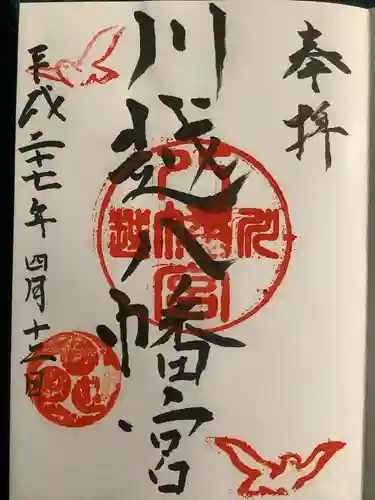 奉拝
川越八幡宮
平成二十七年四月十二日
川越八幡宮